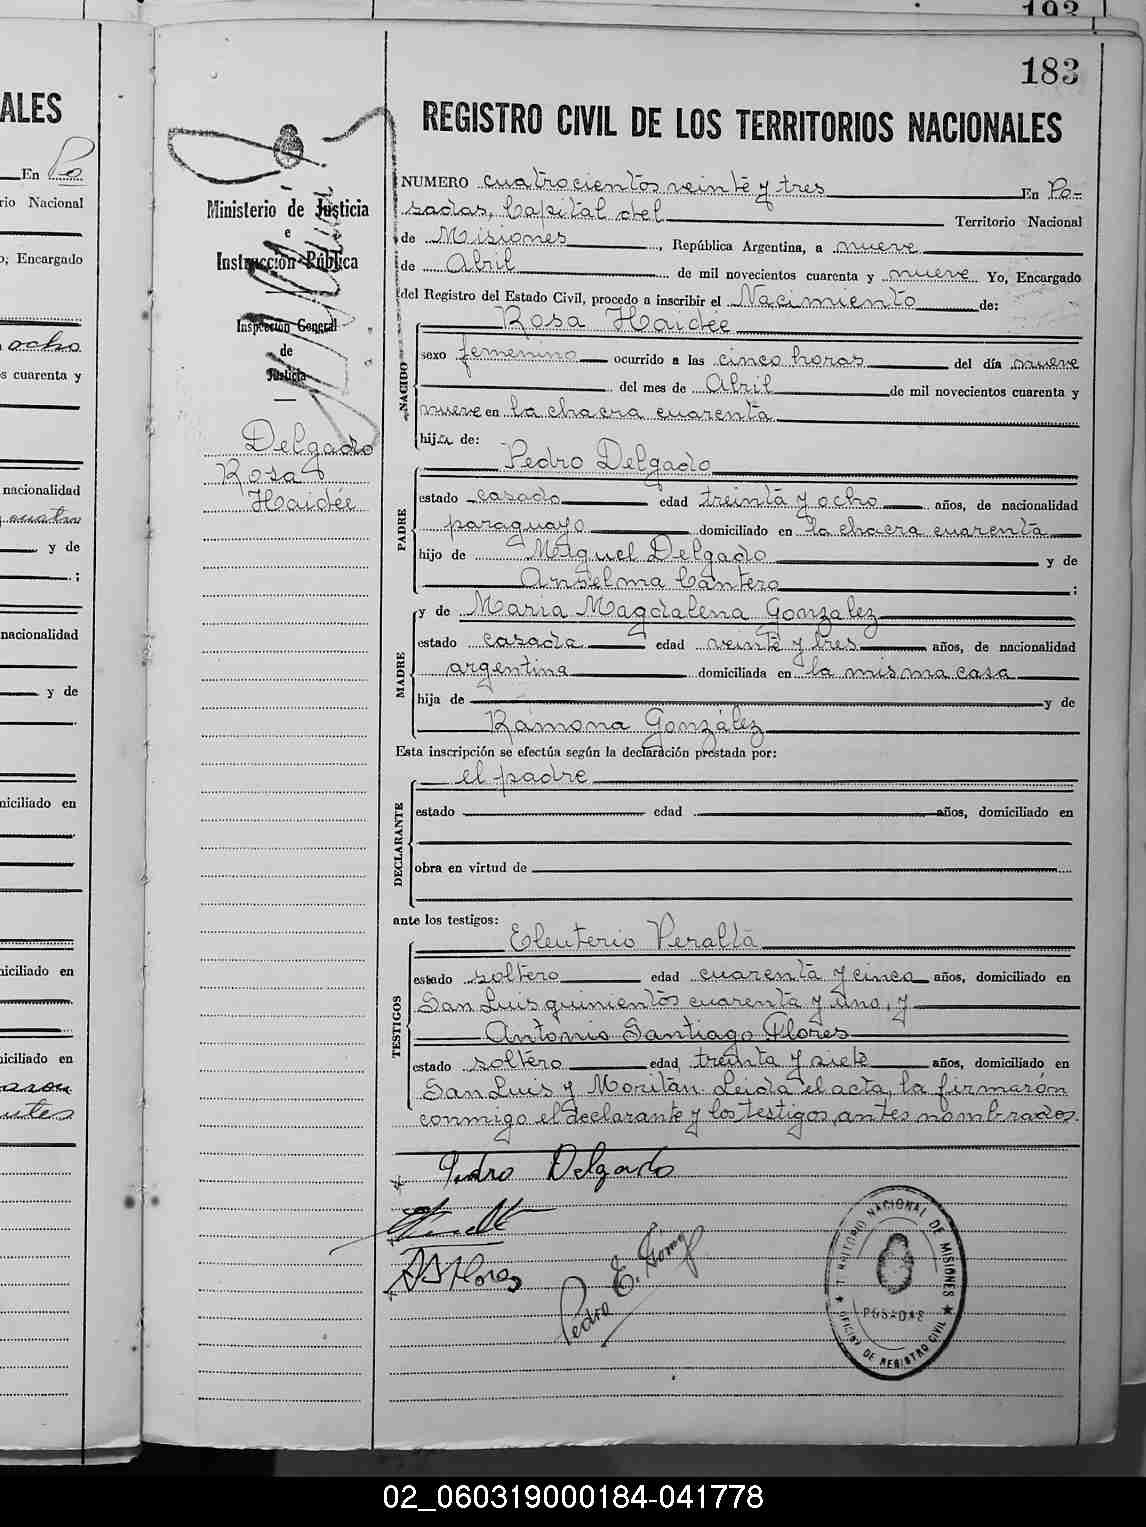 193
183
ALES
En Po
rio Nacional
o, Encargado
ocho
s cuarenta y
nacionalidad
cuatro
y de
;
nacionalidad
y de
niciliado en
niciliado en
niciliado en
REGISTRO CIVIL DE LOS TERRITORIOS NACIONALES
Ministerio de Justicia
e
Instrucción Pública
Inspección General
de
Justicia
Delgado
Rosa
Haidée
NUMERO cuatrocientos veinte y tres En Po-
sadas, Capital del Territorio Nacional
de Misiones, República Argentina, a nueve
de Abril de mil novecientos cuarenta y nueve Yo, Encargado
del Registro del Estado Civil, procedo a inscribir el Nacimiento de:
NACIDO
Rosa Haidée
sexo femenino ocurrido a las cinco horas del día nueve
del mes de Abril de mil novecientos cuarenta y
nueve en la chacra cuarenta
hija de:
PADRE
Pedro Delgado
estado casado edad treinta y ocho años, de nacionalidad
paraguayo domiciliado en la chacra cuarenta
hijo de Miguel Delgado y de
Anselma Cantero ;
MADRE
y de María Magdalena González
estado casada edad veinte y tres años, de nacionalidad
argentina domiciliada en la misma casa
hija de y de
Ramona González
Esta inscripción se efectúa según la declaración prestada por:
DECLARANTE
el padre
estado edad años, domiciliado en
obra en virtud de
ante los testigos:
TESTIGOS
Eleuterio Peralta
estado soltero edad cuarenta y cinco años, domiciliado en
San Luis quinientos cuarenta y uno, y
Antonio Santiago Flores
estado soltero edad treinta y siete años, domiciliado en
San Luis y Moritán Leida el acta, la firmarón
conmigo el declarante y los testigos antes nombrados.
Pedro Delgado
A S Flores
Pedro E. Gómez
TERRITORIO NACIONAL DE MISIONES
POSADAS
OFICINA DE REGISTRO CIVIL
02_060319000184-041778